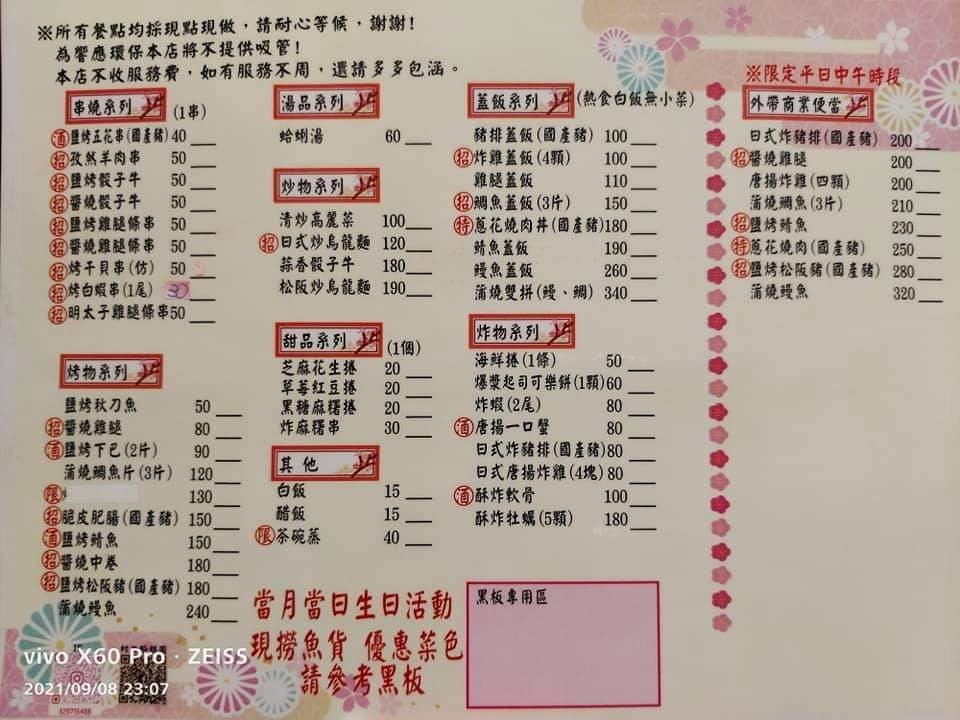 ※所有餐點均採現點現做，請耐心等候，謝謝！
為響應環保本店將不提供吸管！
本店不收服務費，如有服務不周，還請多多包涵。
串燒系列 (1串)
酒 鹽烤五花串(國產豬) 40
招 孜然羊肉串 50
招 鹽烤骰子牛 50
招 醬燒骰子牛 50
招 鹽烤雞腿條串 50
招 醬燒雞腿條串 50
招 烤干貝串(仿) 50
招 烤白蝦串(1尾) 30
招 明太子雞腿條串 50
烤物系列
鹽烤秋刀魚 50
招 醬燒雞腿 80
酒 鹽烤下巴(2片) 90
蒲燒鯛魚片(3片) 120
限 130
招 脆皮肥腸(國產豬) 150
酒 鹽烤鯖魚 150
招 醬燒中卷 180
招 鹽烤松阪豬(國產豬) 180
蒲燒鰻魚 240
湯品系列
蛤蜊湯 60
炒物系列
清炒高麗菜 100
招 日式炒烏龍麵 120
蒜香骰子牛 180
松阪炒烏龍麵 190
甜品系列 (1個)
芝麻花生捲 20
草莓紅豆捲 20
黑糖麻糬捲 20
炸麻糬串 30
其他
白飯 15
醋飯 15
限 茶碗蒸 40
蓋飯系列 (熱食白飯無小菜)
豬排蓋飯(國產豬) 100
招 炸雞蓋飯(4顆) 100
雞腿蓋飯 110
招 鯛魚蓋飯(3片) 150
特 蔥花燒肉丼(國產豬) 180
鯖魚蓋飯 190
鰻魚蓋飯 260
蒲燒雙拼(鰻、鯛) 340
炸物系列
海鮮捲(1條) 50
爆漿起司可樂餅(1顆) 60
炸蝦(2尾) 80
酒 唐揚一口蟹 80
日式炸豬排(國產豬) 80
日式唐揚炸雞(4塊) 80
酒 酥炸軟骨 100
酥炸牡蠣(5顆) 180
※限定平日中午時段
外帶商業便當
日式炸豬排(國產豬) 200
招 醬燒雞腿 200
唐揚炸雞(四顆) 200
蒲燒鯛魚(3片) 210
招 鹽烤鯖魚 230
特 蔥花燒肉(國產豬) 250
招 鹽烤松阪豬(國產豬) 280
蒲燒鰻魚 320
當月當日生日活動
現撈魚貨 優惠菜色
請參考黑板
黑板專用區
vivo X60 Pro · ZEISS
2021/09/08 23:07